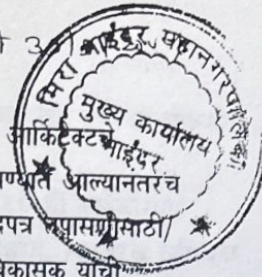 मिरा भाईंदर महानगरपालिका
मुख्य कार्यालय
भाईंदर
आर्किटेक्टचे
आल्यानंतरच
तपासणीसाठी/
विकासक यांची